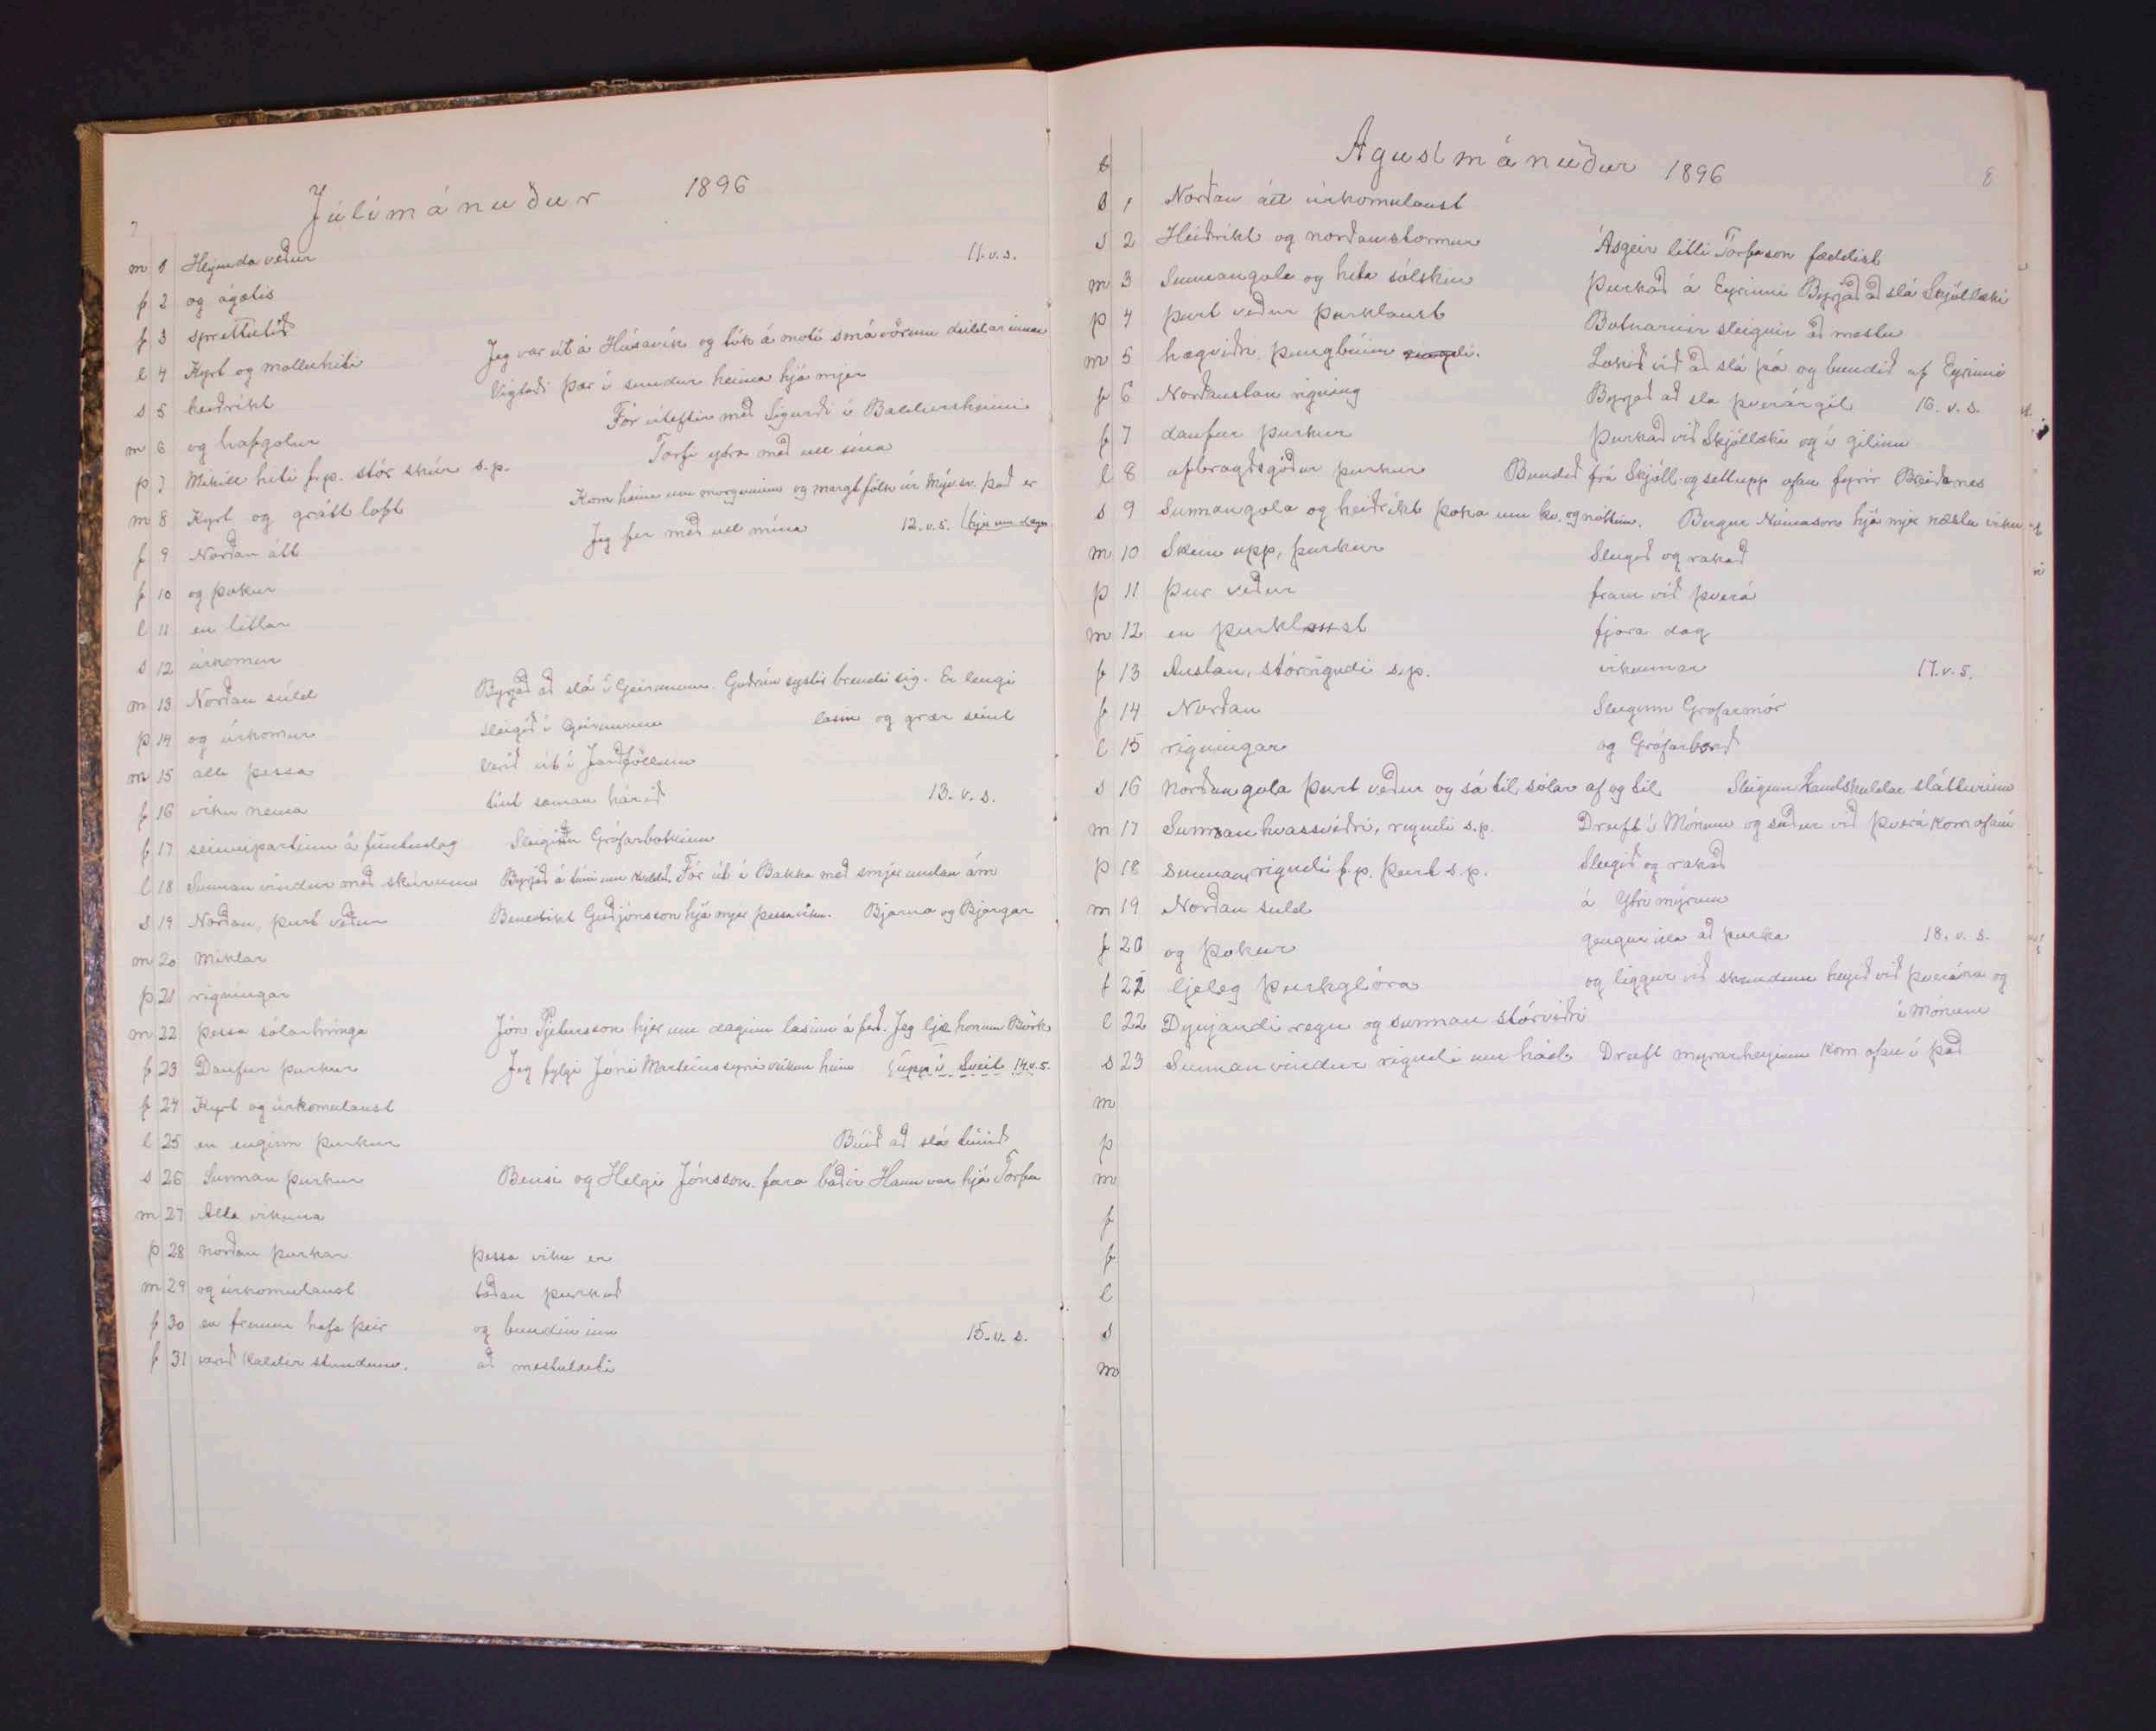 7
Júlímánuður 1896
m 1 Hlýinda veður 11. v. s.
f 2 og ágætis
f 3 sprettutíð
l 4 Kyrt og molluhiti Jeg var út á Húsavík og tók á móti smávörum deildarinnar
s 5 heiðríkt Vigtaði þær í sundur heima hjá mjer
m 6 og hafgolur Fór úteftir með Sigurði í Baldursheimi
þ 7 Mikill hiti f.p. stór skúr s.p. Torfi ytra með ull sína
m 8 Kyrt og grátt loft Kom heim um morguninn og margt fólk úr Mýv.sv. það er
f 9 Norðan átt Jeg fer með ull mína 12. v. s. hjer um daginn
f 10 og þokur
l 11 en litlar
s 12 úrkomur
m 13 Norðan súld Byrjað að slá í Geirunum. Guðrún systir brendi sig. Er lengi
þ 14 og úrkomur Slegið í Geirunum lasin og grær seint
m 15 alla þessa Verið út í Jarðföllum
f 16 viku nema tínt saman hárið 13. v. s.
f 17 seinnipartinn á fimtudag Sleginn Grófarbakkinn
l 18 Sunnan vindur með skúrum Byrjað á túni um kveldið. Fór út í Bakka með smjör undan ám
s 19 Norðan, þurt veður Benedikt Guðjónsson hjá mjer þessa viku. Bjarna og Bjargar
m 20 Miklar
þ 21 rigningar
m 22 þessa sólarhringa Jón Pjetursson hjer um daginn lasinn á ferð. Jeg ljæ honum Börk
f 23 Daufur þurkur Jeg fylgi Jóni Marteinssyni veikum heim uppí Sveit 14. v. s.
f 24 Kyrt og úrkomulaust
l 25 en enginn þurkur Búið að slá túnið
s 26 Sunnan þurkur Bensi og Helgi Jónsson fara báðir Hann var hjá Torfa
m 27 Alla vikuna
þ 28 norðan þurkar þessa viku er
m 29 og úrkomulaust taðan þurkuð
f 30 en fremur hafa þeir og bundin inn 15. v. s.
f 31 verið kaldir stundum. að mestuleiti
8
Agustmánuður 1896
l 1 Norðan átt úrkomulaust
s 2 Heiðríkt og norðanstormur Ásgeir litli Torfason fæddist
m 3 Sunnangola og hita sólskin Þurkað á Eyrinni Byrjað að slá Skjóllæki
þ 4 þurt veður þurklaust Botnarnir slegnir að mestu
m 5 hægviðri, þungbúinn Lokið við að slá þá og bundið af Eyrinni
f 6 Norðaustan rigning Byrjað að slá Þverárgil 16. v. s.
f 7 daufur þurkur Þurkað við Skjóllæki og í gilinu
l 8 afbragðsgóður þurkur Bundið frá Skjóll. og sett upp ofan fyrir Breiðanes
s 9 Sunnangola og heiðríkt þoka um kv. og nóttina. Bergur Númason hjá mjer næstu viku
m 10 Skein upp, þurkur Slegið og rakað
þ 11 þur veður fram við Þverá
m 12 en þurklaust fjóra dag
f 13 Austan, stórrigndi s.p. vikunnar 17. v. s.
f 14 Norðan Sleginn Grófarmór
l 15 rigningar og Grófarborð
s 16 Norðangola þurt veður og sá til sólar af og til
m 17 Sunnan hvassviðri, rigndi s.p. Dreift í Mónum og suður við Þverá kom ofaní
þ 18 sunnan, rigndi f.p. þurt s.p. Slegið og rakað
m 19 Norðan suld á Ytri mýrum
f 20 og þokur gengur illa að þurka 18. v. s.
f 21 ljeleg þurkglóra og liggur við skemdum heyið við Þverána og
l 22 Dynjandi regn og sunnan stórviðri í Mónum
s 23 Sunnan vindur rigndi um hád. Dreift mýrarheyinu kom ofan í það
m
þ
m
f
f
l
s
m